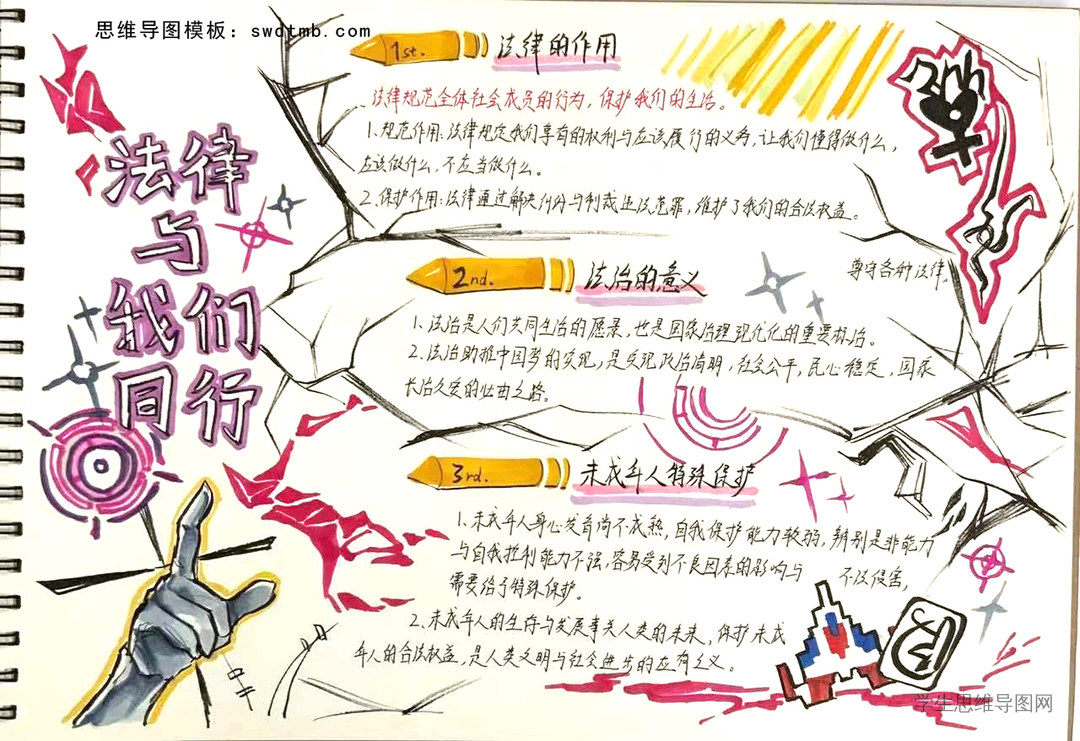 思维导图模板：swdtmb.com
法律
与
我们
同行
1st.
法律的作用
法律规范全体社会成员的行为，保护我们的生活。
1.规范作用：法律规定我们享有的权利与应该履行的义务，让我们懂得做什么，
应该做什么，不应当做什么。
2.保护作用：法律通过解决纠纷与制裁违法犯罪，维护了我们的合法权益。
尊守各种法律，
2nd.
法治的意义
1.法治是人们共同生活的愿景，也是国家治理现代化的重要标志。
2.法治助推中国梦的实现，是实现政治清明，社会公平，民心稳定，国家
长治久安的必由之路。
3rd.
未成年人特殊保护
1.未成年人身心发育尚不成熟，自我保护能力较弱，辨别是非能力
与自我控制能力不强，容易受到不良因素的影响与 不法侵害，
需要给予特殊保护。
2.未成年人的生存与发展事关人类的未来，保护未成
年人的合法权益，是人类文明与社会进步的应有之义。
学生思维导图网